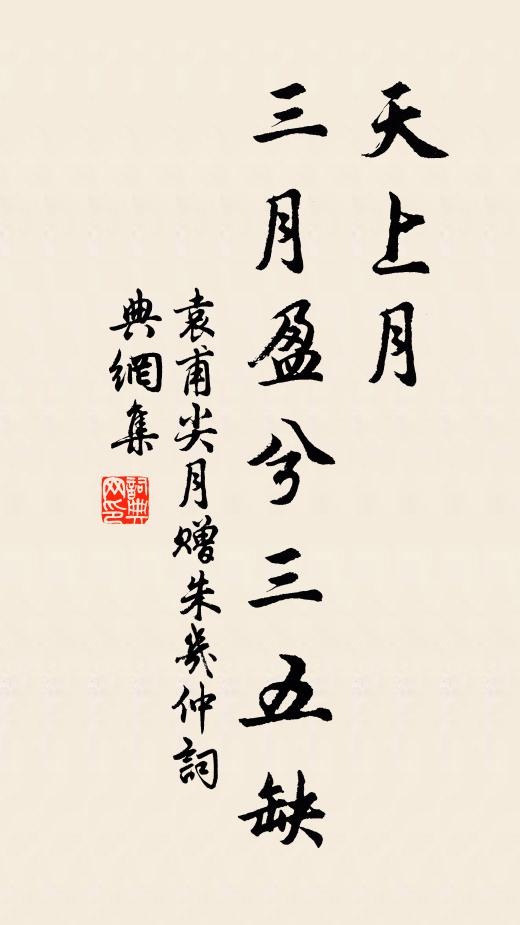 天上月
三月盈兮三五缺
袁甫尖月赠朱几仲詞
典網集
詞典网印